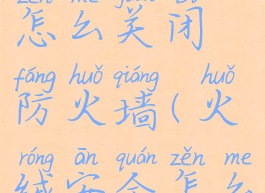 怎么关闭
fáng huǒ qiáng huǒ
防火墙(火
róng ān quán zěn me
绒安全怎么